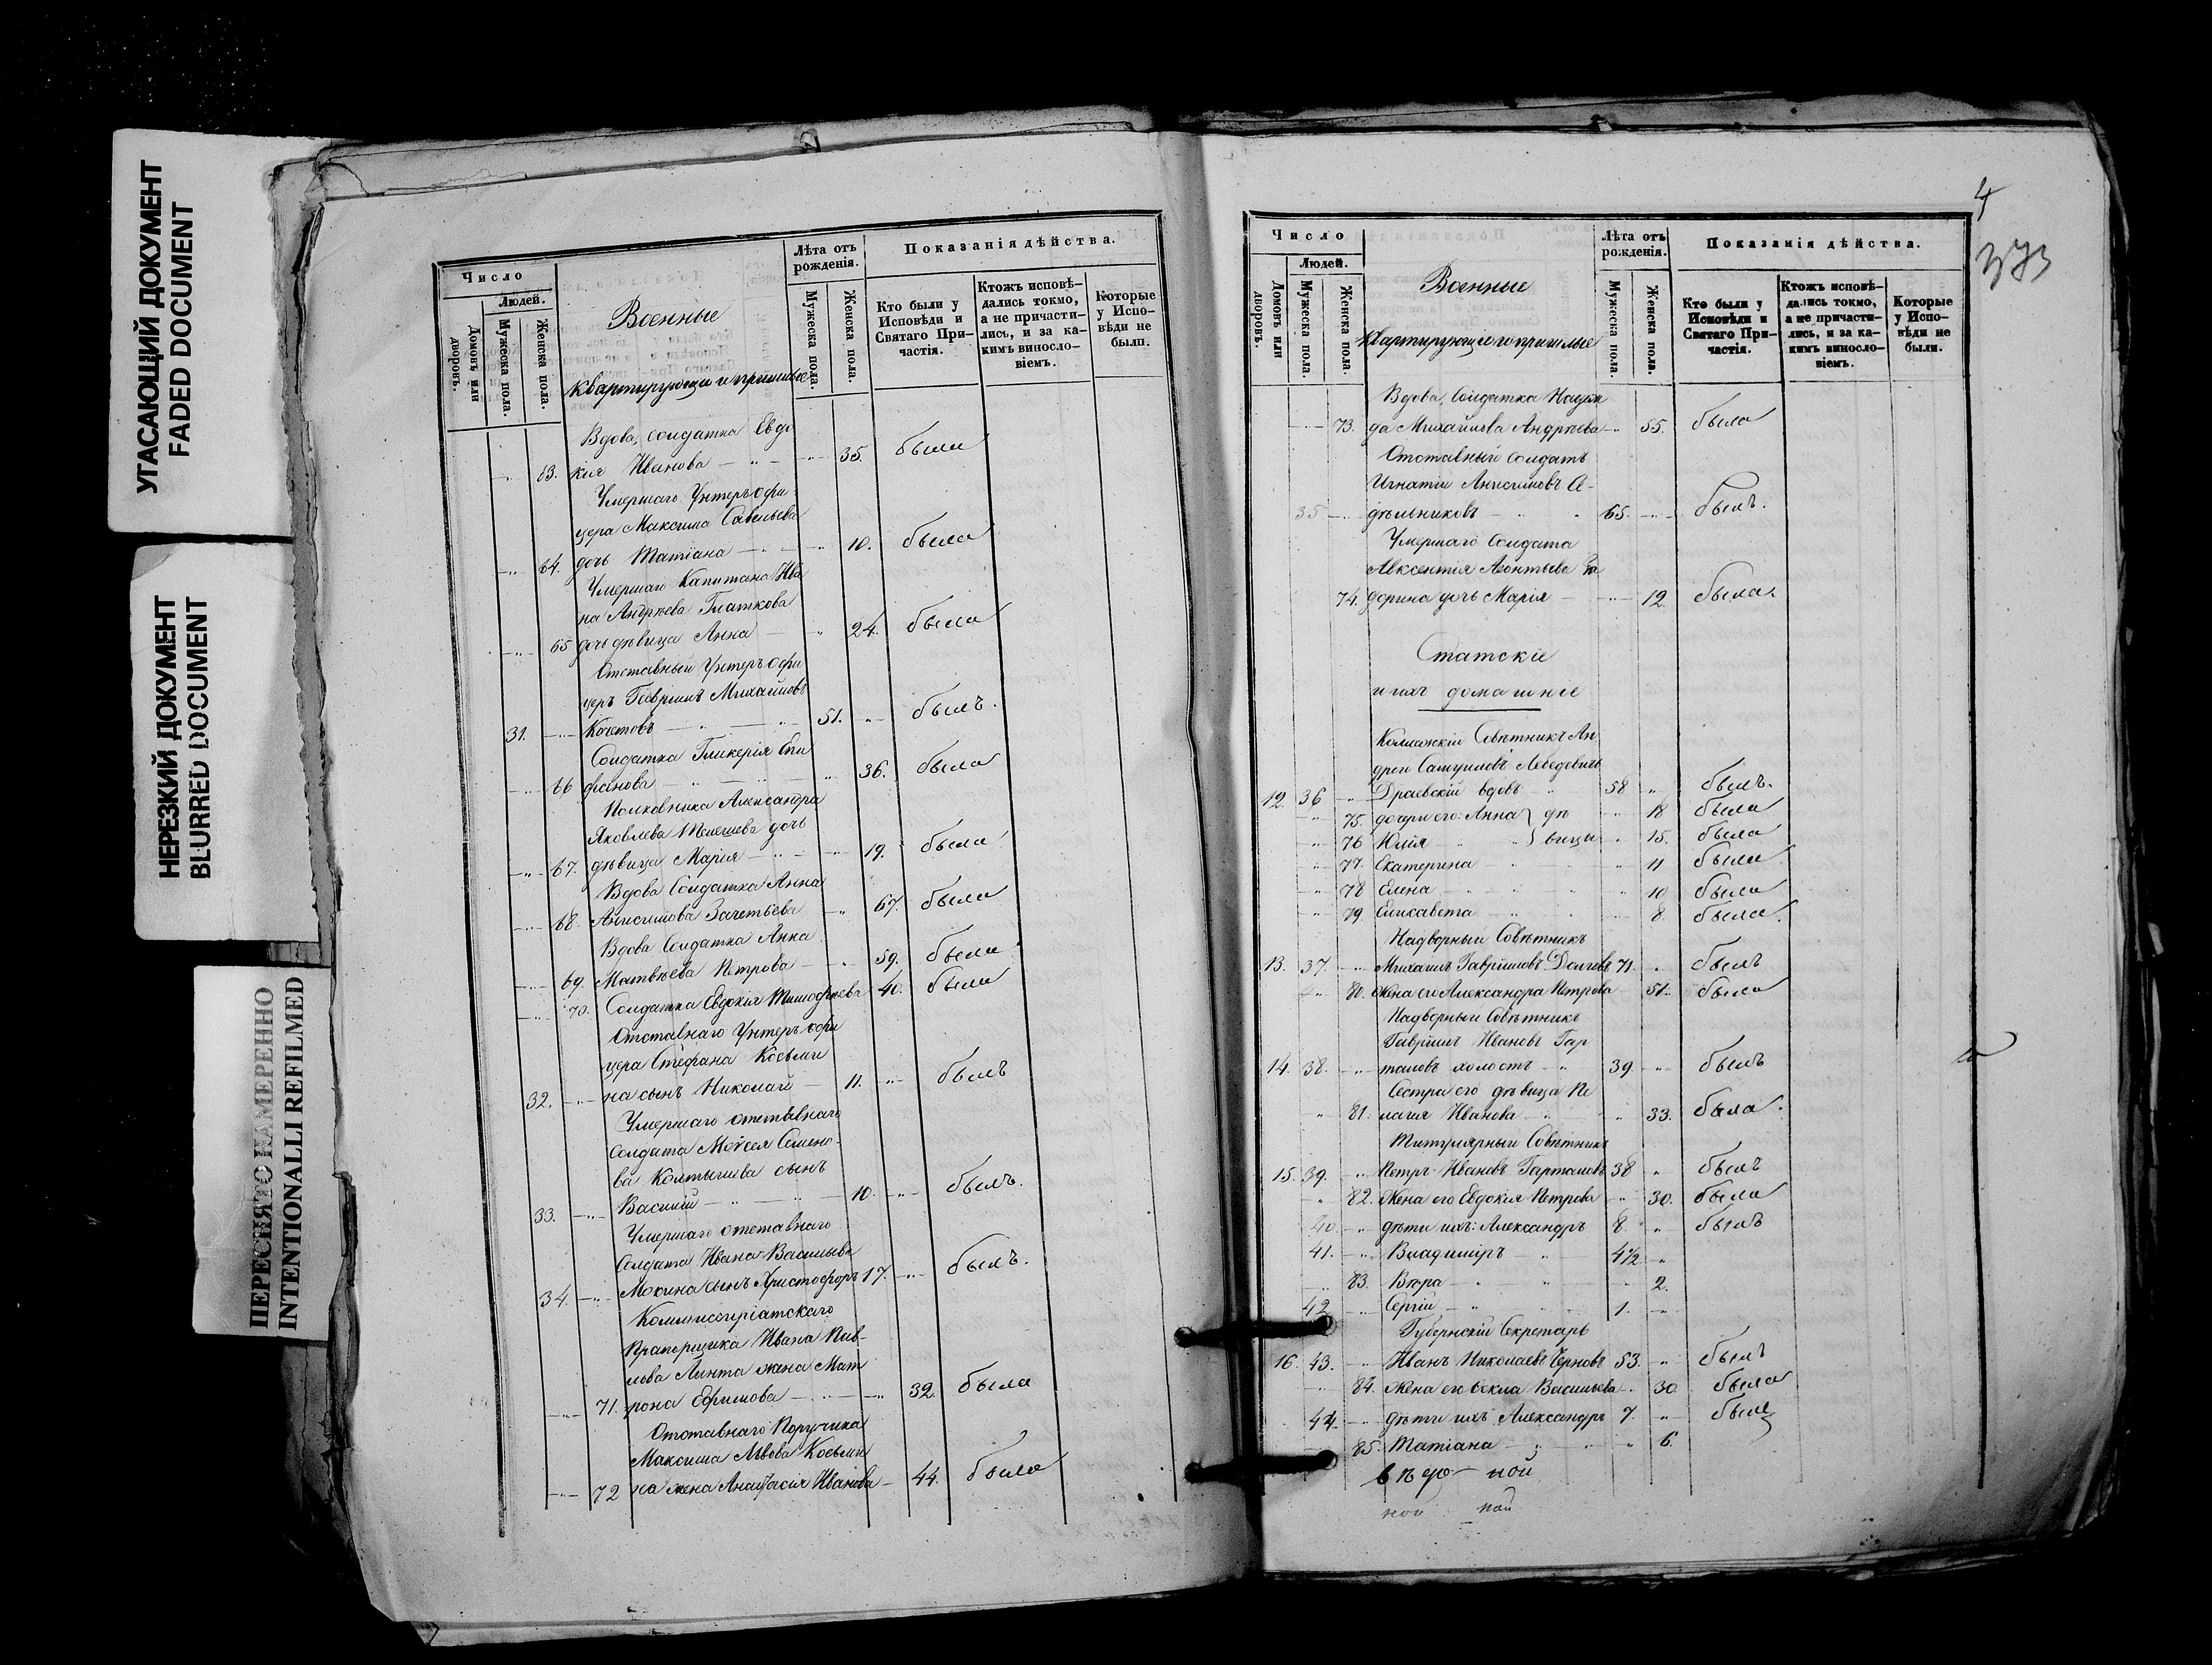 УГАСАЮЩИЙ ДОКУМЕНТ
FADED DOCUMENT
НЕРЕЗКИЙ ДОКУМЕНТ
BLURRED DOCUMENT
ПЕРЕСНЯТО НАМЕРЕННО
INTENTIONALLI REFILMED
Число
Людей.
Домовъ или дворовъ.
Мужеска пола.
Женска пола.
Военные
квартирующiи и пришлые
Лѣта отъ рожденiя.
Мужеска пола.
Женска пола.
Показанiя дѣйства.
Кто были у Исповѣди и Святаго Причастiя.
Ктожъ исповѣдались токмо, а не причастились, и за какимъ винословiемъ.
Которые у Исповѣди не были.
Вдова, солдатка Евдо
63. кiя Иванова 35. была
Умершаго Унтеръ офи
цера Максима Савельева
64. дочь Татiана 10. была
Умершаго Капитана Ива
на Андрѣева Глаткова
65 дочь дѣвица Анна 24. была
Отставный Унтеръ офи
церъ Гаврiилъ Михайловъ
31. Кочетовъ 51. былъ.
Солдатка Гликерiя Епи
66 фанова 36. была
Полковника Александра
Яковлева дочь
67. дѣвица Марiя 19. была
Вдова Солдатка Анна
68. Анисимова 67. была
Вдова Солдатка Анна
69. Матвѣева Петрова 59. была
70. Солдатка Евдокiя Тимофѣева 40. была
Отставнаго Унтеръ офи
цера Стефана Косьми
32. на сынъ Николай 11. былъ
Умершаго отставнаго
Солдата Моѵсея Семено-
ва сынъ
33. Василiй 10. былъ.
Умершаго отставнаго
Солдата Ивана Васильева
34. Мокина сынъ Христофоръ 17. былъ.
Коммисарiатскаго
Прапорщика Ивана Пав-
лова Линта жена Мат
71. рона Ефимова 32. была
Отставнаго Поручика
Максима Львова Косьми
72 на жена Анастасiя Иванова 44. была
4
373
Число
Людей.
Домовъ или дворовъ.
Мужеска пола.
Женска пола.
Военные
квартирующiе и пришлые
Лѣта отъ рожденiя.
Мужеска пола.
Женска пола.
Показанiя дѣйства.
Кто были у Исповѣди и Святаго Причастiя.
Ктожъ исповѣдались токмо, а не причастились, и за какимъ винословiемъ.
Которые у Исповѣди не были.
Вдова, Солдатка Надеж
73. да Михайлова Андрѣева 55. была
Отставный Солдатъ
Игнатiй Анисимовъ Се-
35 дѣльниковъ 65. былъ.
Умершаго Солдата
Авксентiя Леонтьева
74. дочь Марiя 12 была.
Статскiе
и ихъ домашнiе
Коллежскiй Совѣтникъ Ан
дрей Самуиловъ Лебедевичъ
12. 36 Драевскiй вдовъ 58 былъ.
75. дочери его: Анна } дѣ 18 была
76 Юлiя } вицы 15. была
77. Екатерина 11 была
78 Елена 10 была
79. Елисавета 8. была.
Надворный Совѣтникъ
13. 37. Михаилъ Гаврiиловъ Долговъ 71. былъ
80. Жена его Александра Петрова 51. была
Надворный Совѣтникъ
Гаврiилъ Ивановъ Гар
14. 38. таловъ холостъ 39 былъ
Сестра его дѣвица Пе
81. лагiя Иванова 33. была.
Титулярный Совѣтникъ
15. 39. Петръ Ивановъ Гарталовъ 38 былъ
82. Жена его Евдокiя Петрова 30. была
40 дѣти ихъ: Александръ 8 былъ
41. Владимiръ 4½
83. Вѣра 2.
42 Сергiй 1.
Губернскiй Секретарь
16. 43. Иванъ Николаевъ Черновъ 53. былъ
84. Жена его Ѳекла Васильева 30. была
44. дѣти ихъ Александръ 7. были
85. Татiана 6.